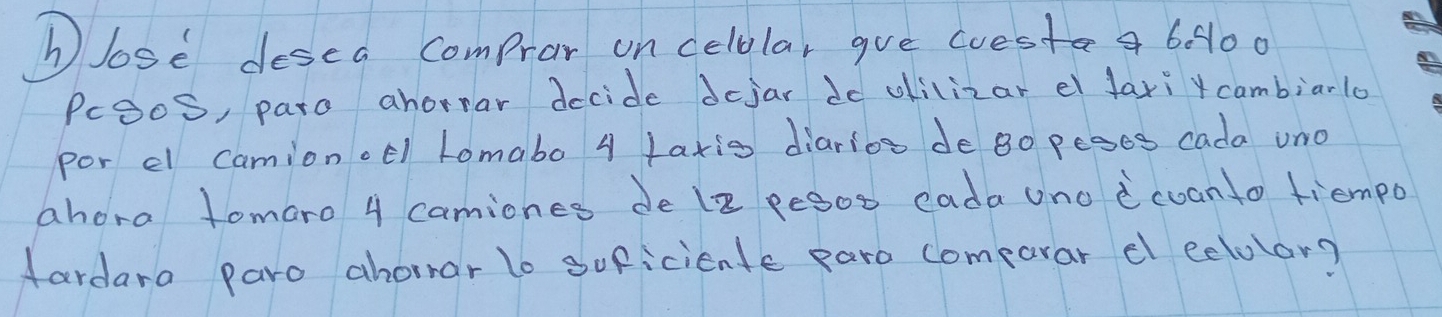 h) José desea comprar un celular que cuesta $ 6.400
pesos, para ahorrar decide dejar de utilizar el taxi y cambiarlo
por el camion. el tomabo 4 taxis diarios de 80 pesos cada uno
ahora tomaro 4 camiones de 12 pesos cada uno ¿cuanto tiempo
tardara paro ahorrar lo suficiente para comparar el celular?